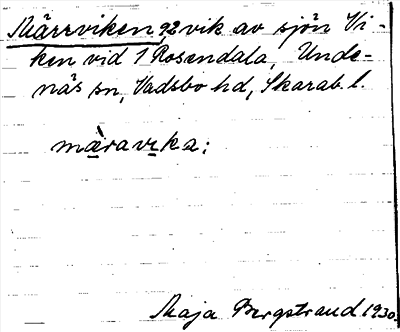 Märrviken, 92 vik av sjön Vi-
ken vid 1 Rosendala, Unde-
näs sn, Vadsbo hd, Skarab. l.
mæ̀ravɪka;
Maja Bergstrand 1930.